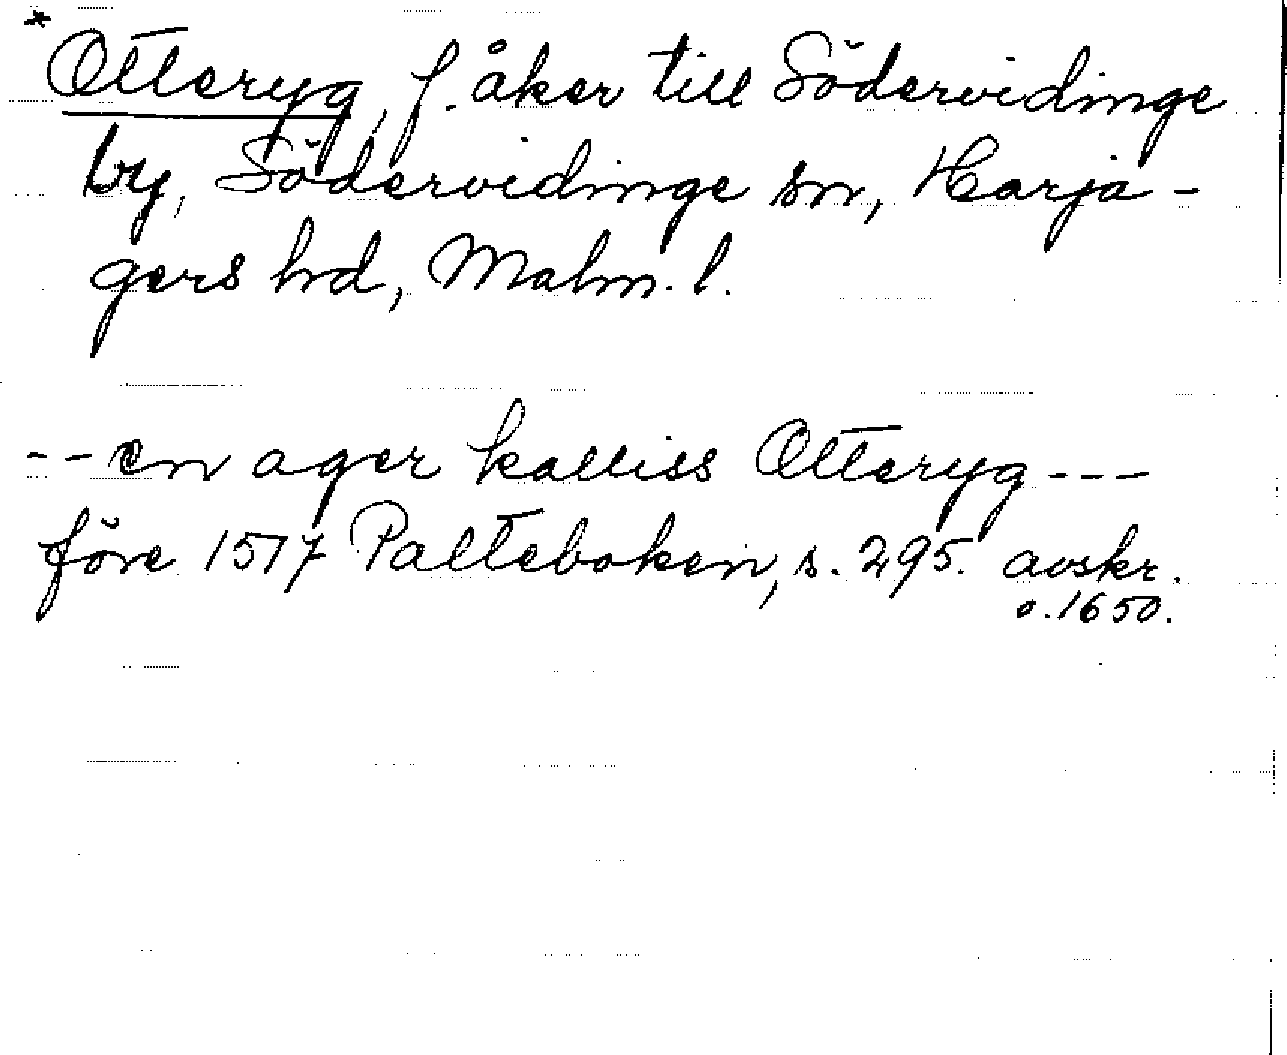 *Otteryg, f. åker till Södervidinge
by, Södervidinge sn, Harja-
gers hd, Malm. l.
-- en ager kalliss Otteryg ---
före 1517 Palteboken, s. 295. avskr.
o. 1650.